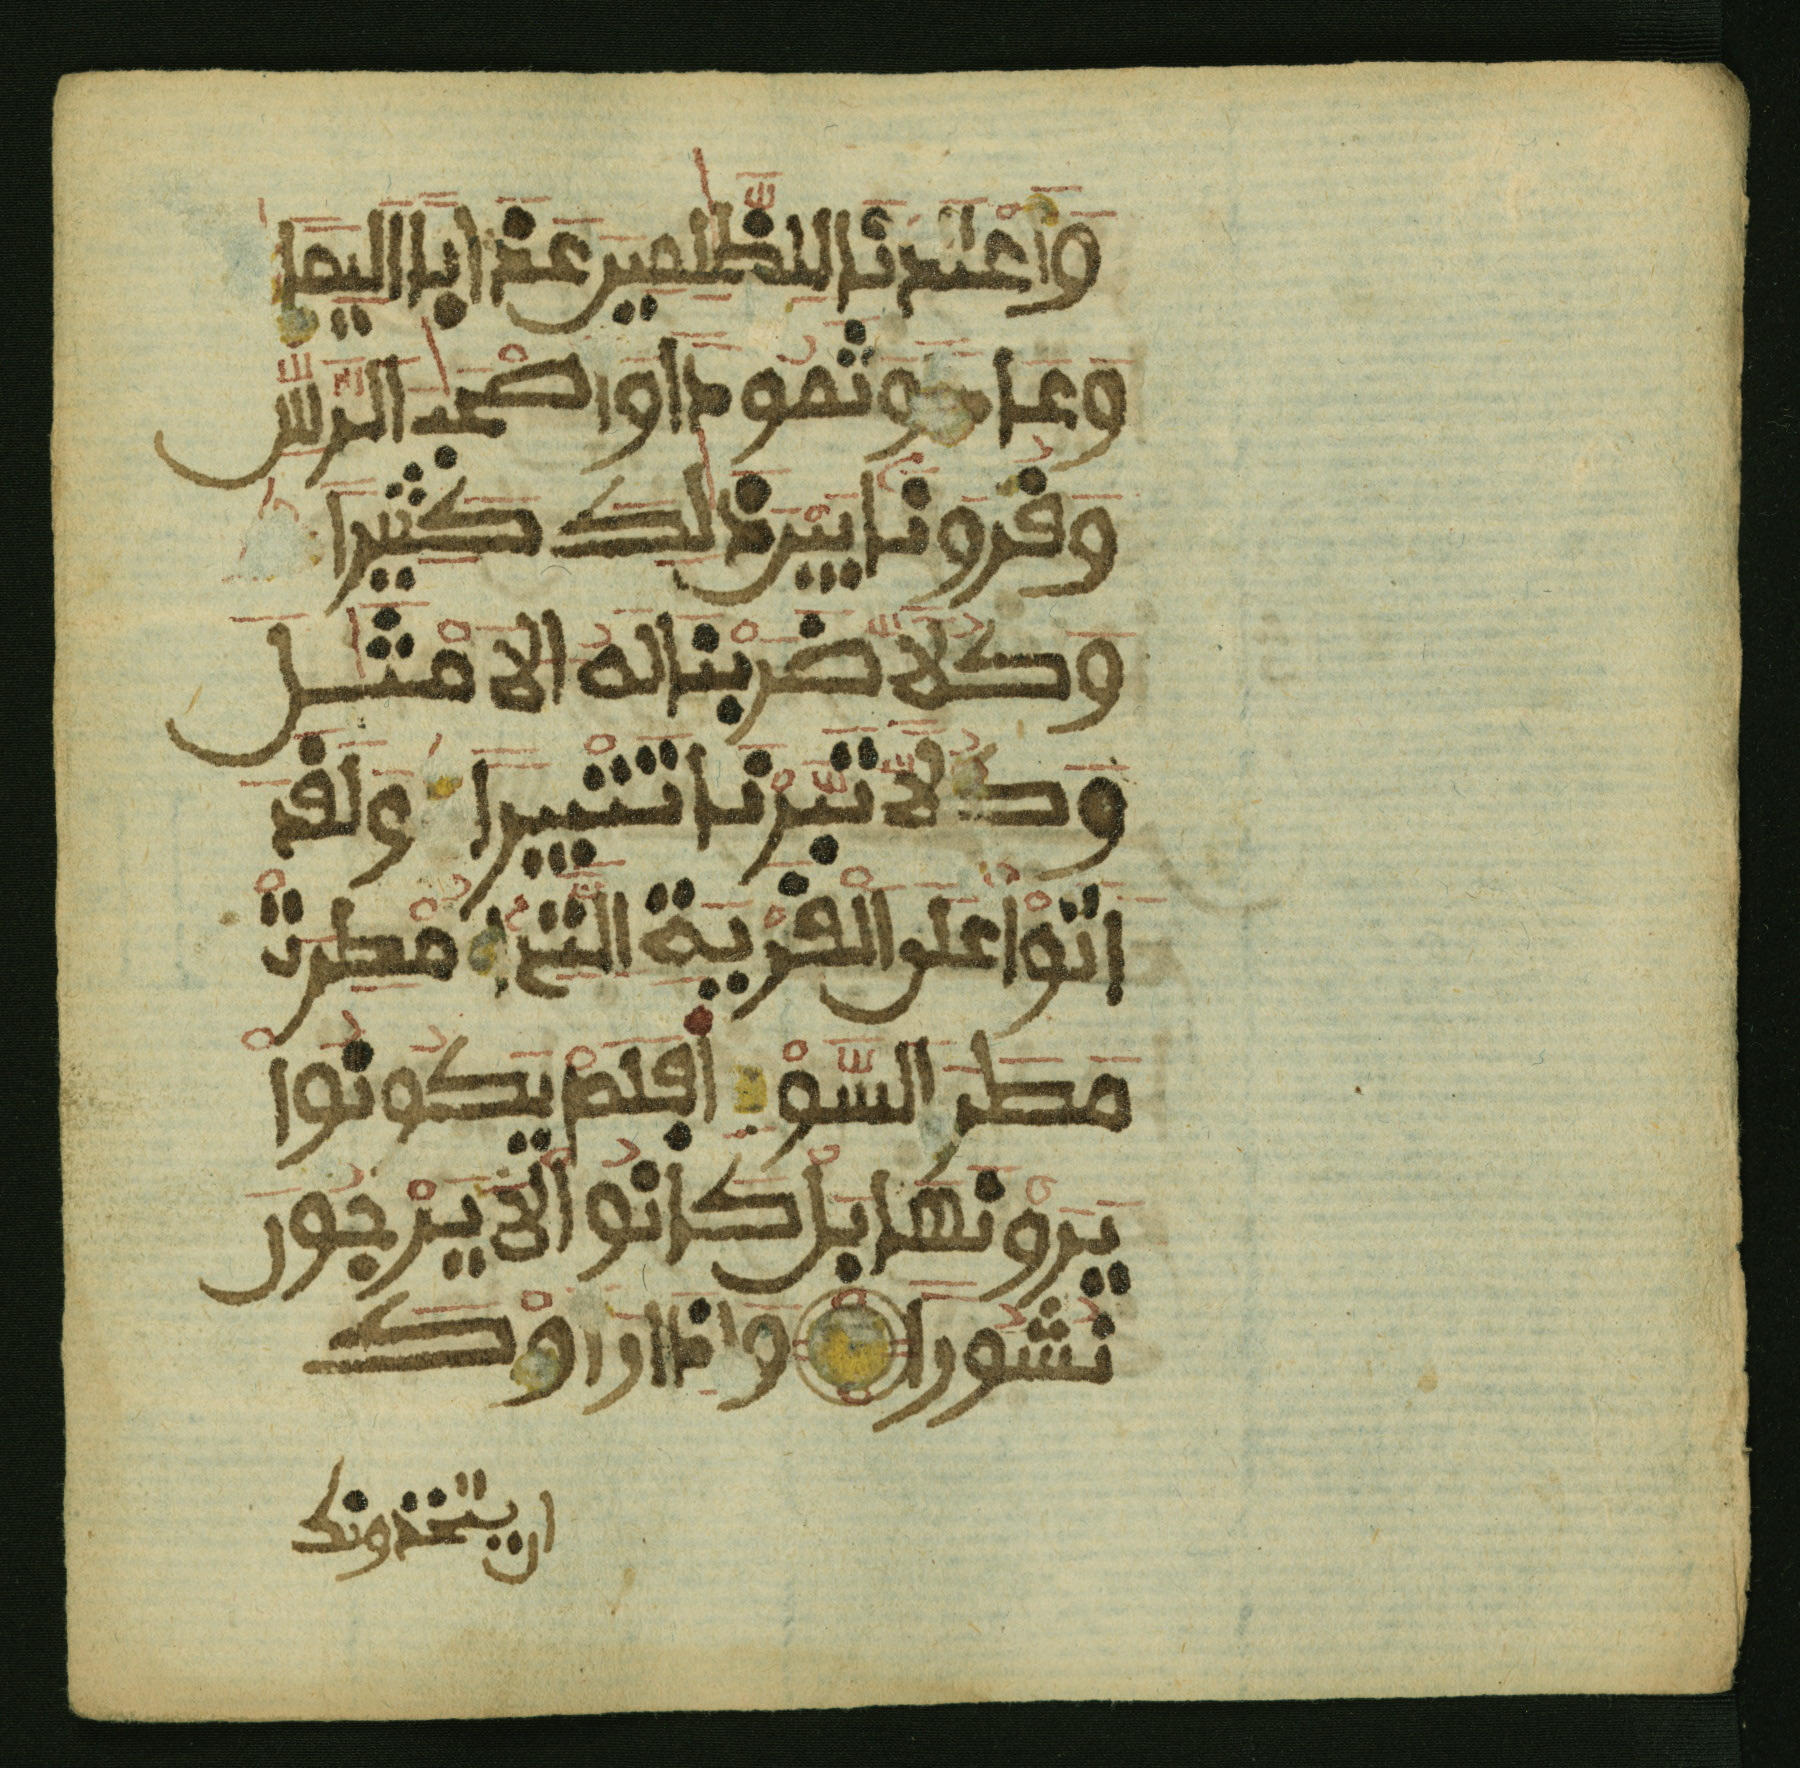 وَأَعْتَدْنَا لِلظَّٰلِمِينَ عَذَابًا اَلِيمًا
وَعَادًا وَثَمُودًا وَأَصْحَٰبَ الرَّسِّ
وَقُرُونًا بَيْنَ ذَٰلِكَ كَثِيرًا
وَكُلًّا ضَرَبْنَا لَهُ الَامْثَٰلَ
وَكُلًّا تَبَّرْنَا تَتْبِيرًا وَلَقَدَ
اَتَوْا عَلَى الْقَرْيَةِ الَّتِي أُمْطِرَتْ
مَطَرَ السَّوْءِ أَفَلَمْ يَكُونُوا
يَرَوْنَهَا بَلْ كَانُوا لَا يَرْجُونَ
نُشُورًا وَإِذَا رَأَوْكَ
ان يتخذونك